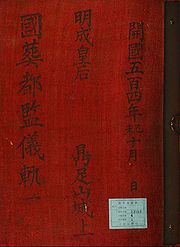 開國五百四年乙未十月 日
明成皇后 鼎足山城上
國葬都監儀軌 一